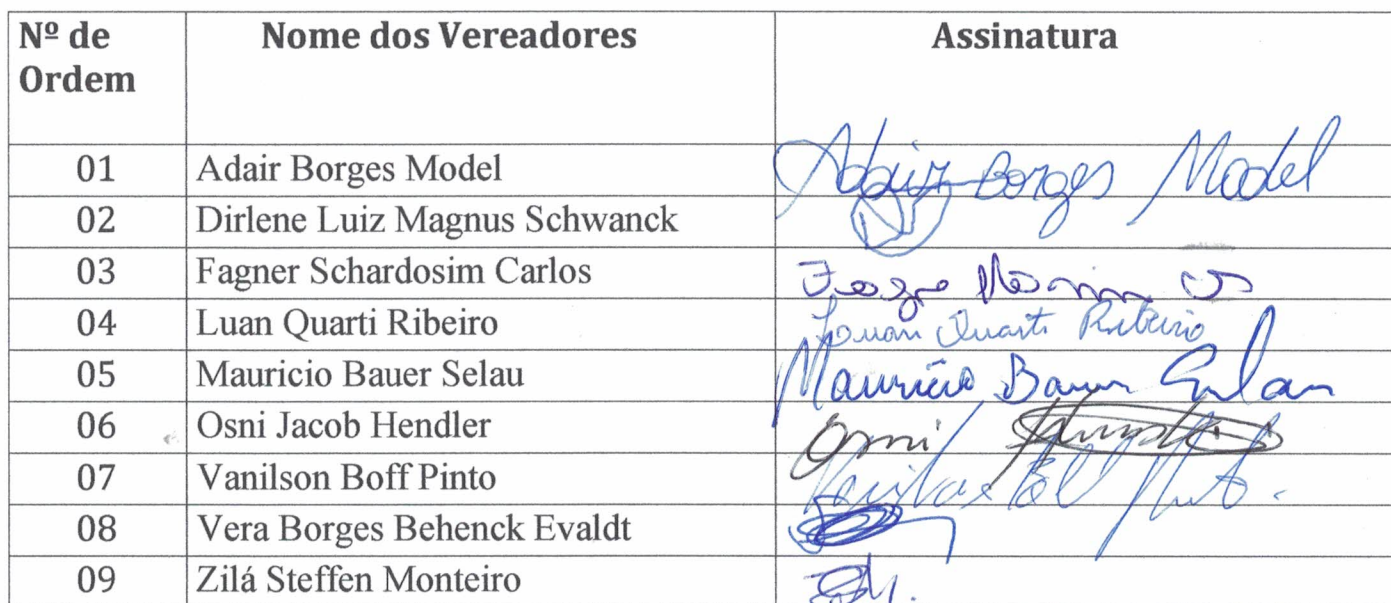 Nº de Ordem Nome dos Vereadores Assinatura
01 Adair Borges Model Adair Borges Model
02 Dirlene Luiz Magnus Schwanck
03 Fagner Schardosim Carlos
04 Luan Quarti Ribeiro Luan Quarti Ribeiro
05 Mauricio Bauer Selau Mauricio Bauer Selau
06 Osni Jacob Hendler Osni
07 Vanilson Boff Pinto
08 Vera Borges Behenck Evaldt
09 Zilá Steffen Monteiro